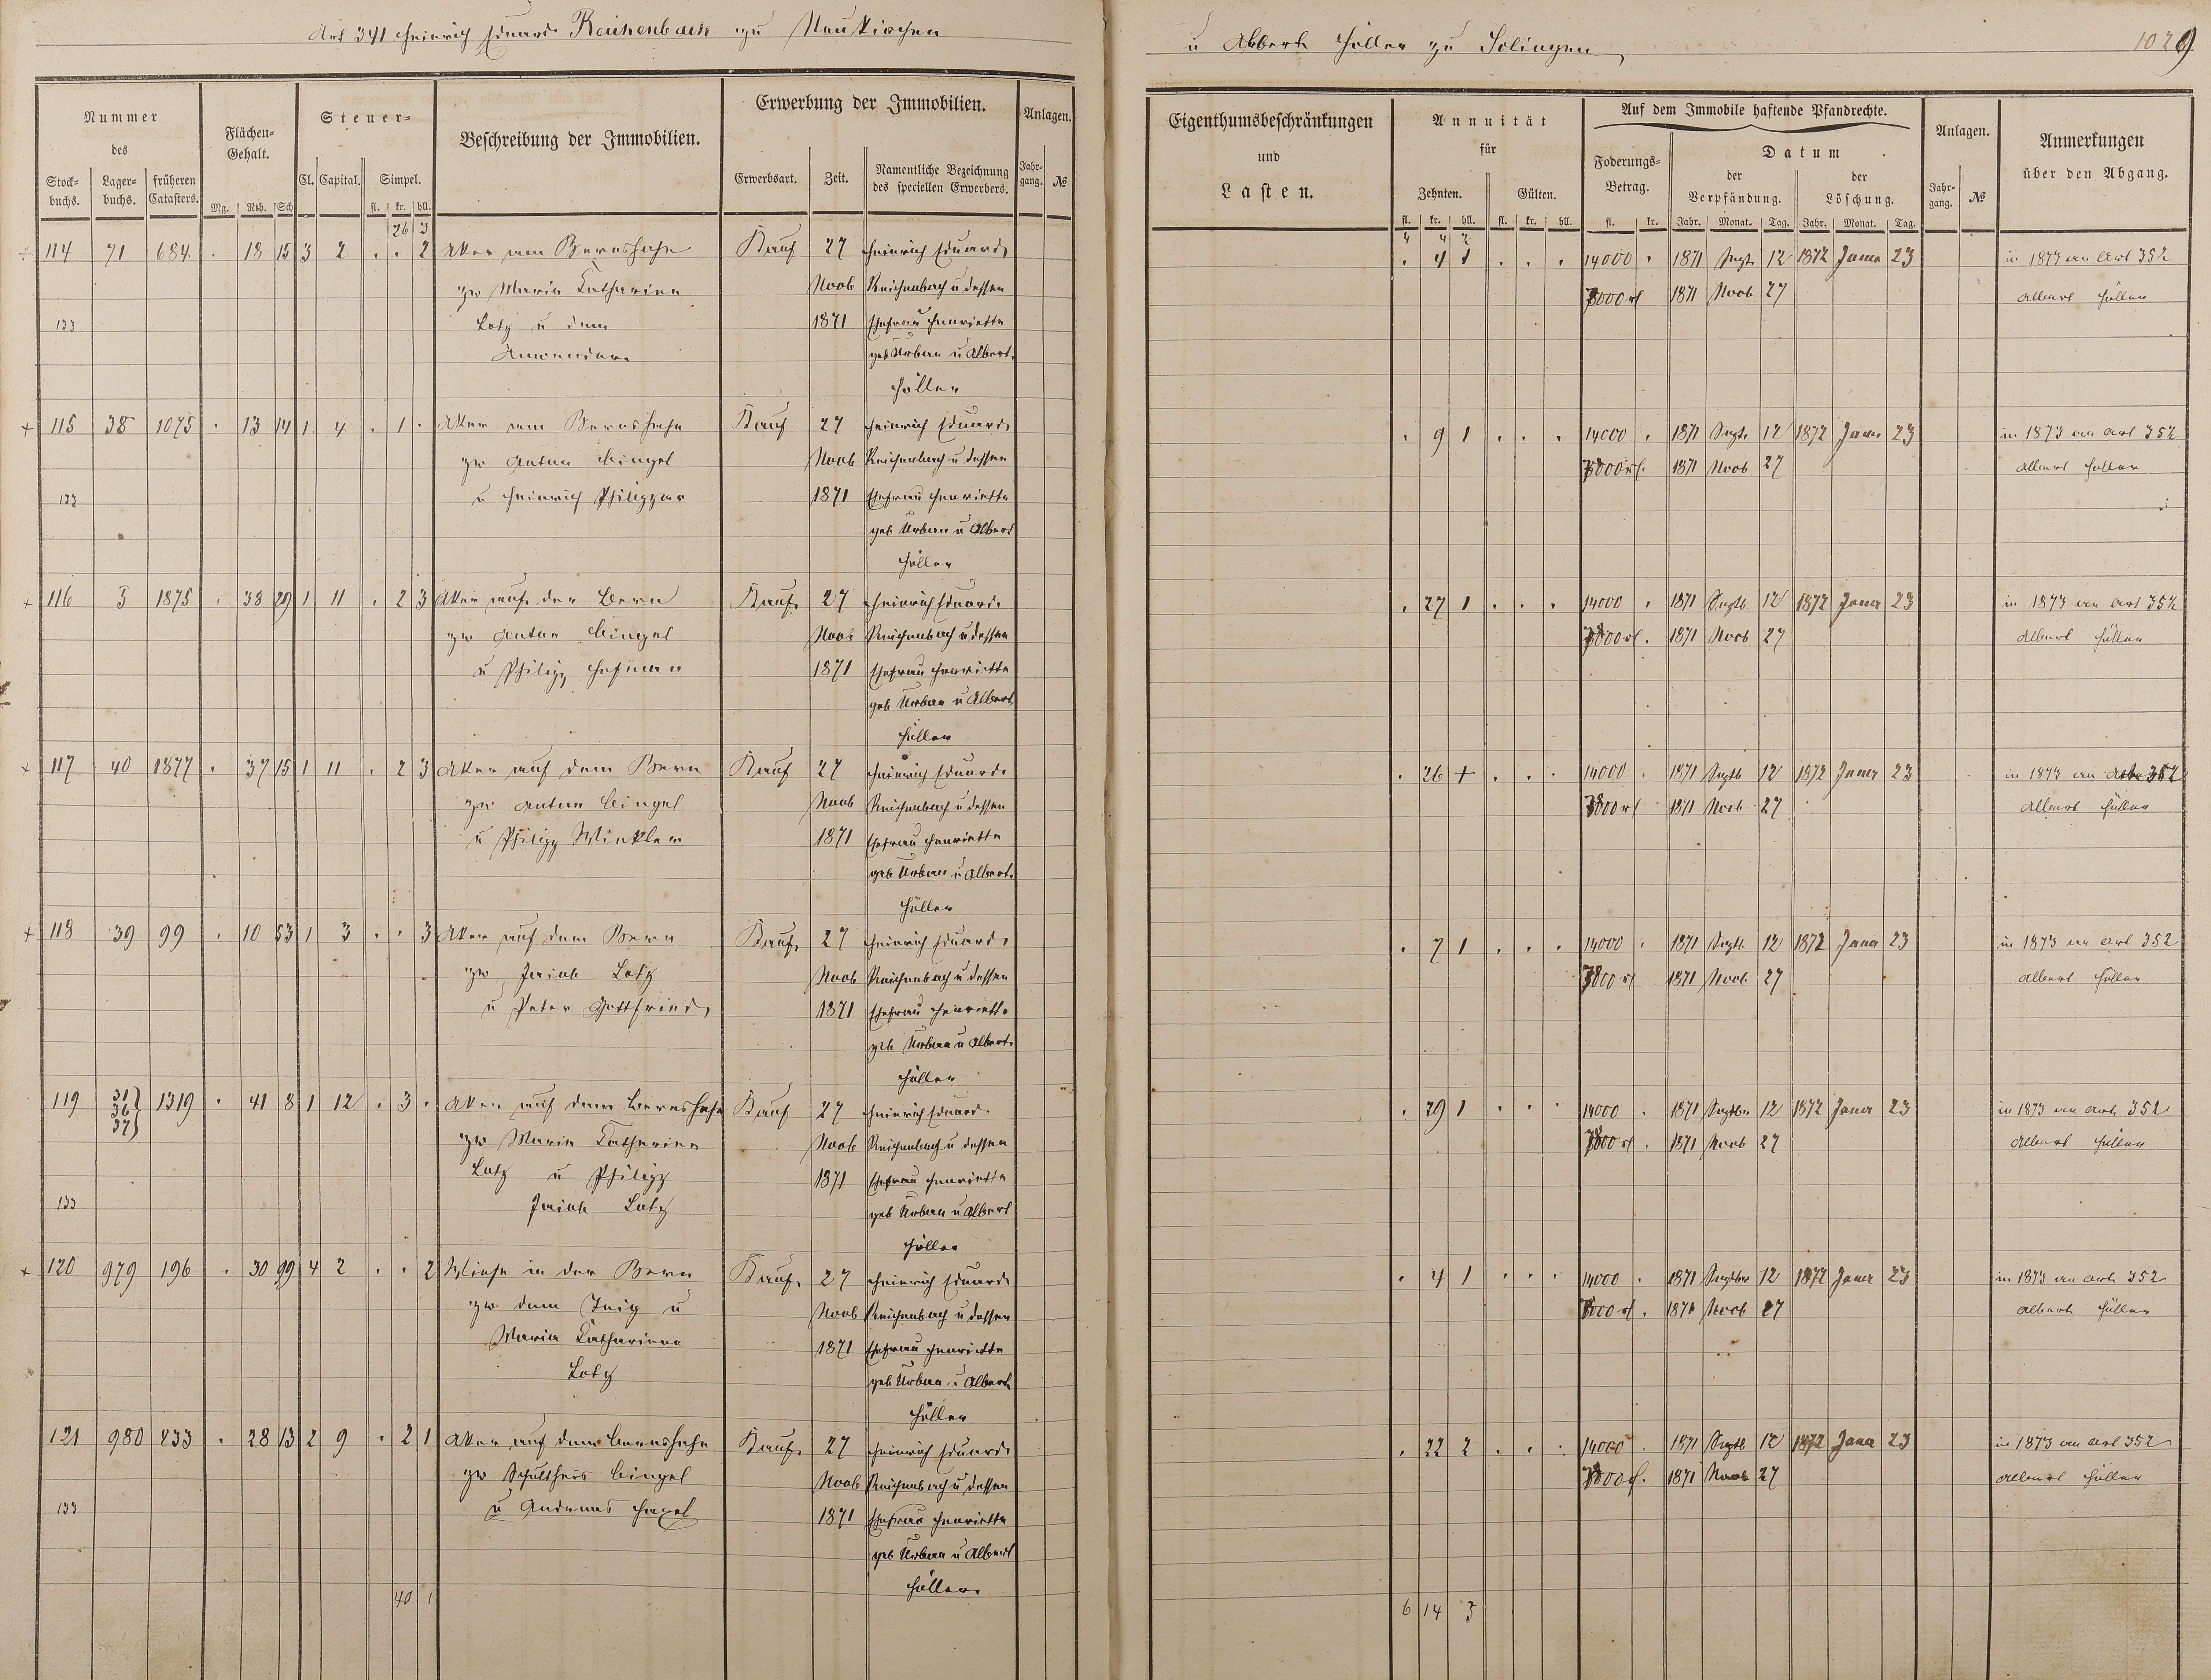 Art 341 Heinrich Eduard Reichenbach zu Neukirchen
u Albert Höller zu Solingen
1029
Nummer
des
Stock-
buchs.
Lager-
buchs.
früheren
Catasters.
Flächen-
Gehalt.
Mg. Rth. Sch
Steuer-
Cl. Capital. Simpel.
fl. kr. hll.
Beschreibung der Immobilien.
Erwerbung der Immobilien.
Erwerbsart. Zeit.
Namentliche Bezeichnung
des speciellen Erwerbers.
Anlagen.
Jahr-
gang. №
Eigenthumsbeschränkungen
und
Lasten.
Annuität
für
Zehnten. Gülten.
fl. kr. hll. fl. kr. hll.
Auf dem Immobile haftende Pfandrechte.
Foderungs-
Betrag.
fl. kr.
Datum
der
Verpfändung.
der
Löschung.
Jahr. Monat. Tag. Jahr. Monat. Tag.
Anlagen.
Jahr-
gang. №
Anmerkungen
über den Abgang.
26 3
4 4 2
114 71 684 . 18 15 3 2 . . 2 Aker am Bernshahn Kauf 27 Heinrich Eduard . 4 1 . . . 14000 . 1871 Septb 12 1872 Janer 23 in 1873 an Art 352
zw Maria Katharina Novb Reichenbach u dessen 1871 Novb 27 Albert Höller
133 Lotz u dem 1871 Ehefrau Henriette
geb Urban u Albert
Höller
+ 115 38 1075 . 13 14 1 4 . 1 . Aker am Bernshahn Kauf 27 Heinrich Eduard . 9 1 . . . 14000 . 1871 Septb 12 1872 Janer 23 in 1873 an Art 352
zw Anton Bingel Novb Reichenbach u dessen 1871 Novb 27 Albert Höller
133 u Heinrich Philippar 1871 Ehefrau Henriette
geb Urban u Albert
Höller
+ 116 3 1875 . 38 29 1 11 . 2 3 Aker auf der Bern Kauf 27 Heinrich Eduard . 27 1 . . . 14000 . 1871 Septb 12 1872 Janer 23 in 1873 an Art 352
zw Anton Bingel Novb Reichenbach u dessen 1871 Novb 27 Albert Höller
u Philipp Hofman 1871 Ehefrau Henriette
geb Urban u Albert
Höller
+ 117 40 1877 . 37 15 1 11 . 2 3 Aker auf dem Bern Kauf 27 Heinrich Eduard . 26 + . . . 14000 . 1871 Septb 12 1872 Janer 23 in 1873 an Art 352
zw Anton Bingel Novb Reichenbach u dessen 1871 Novb 27 Albert Höller
u Philipp Winkler 1871 Ehefrau Henriette
geb Urban u Albert
Höller
+ 118 39 99 . 10 53 1 3 . . 3 Aker auf dem Bern Kauf 27 Heinrich Eduard . 7 1 . . . 14000 . 1871 Septb 12 1872 Janer 23 in 1873 an Art 352
zw Jacob Lotz Novb Reichenbach u dessen 1871 Novb 27 Albert Höller
u Peter Gottfried 1871 Ehefrau Henriette
geb Urban u Albert
Höller
119 31 36 37 1319 . 41 8 1 12 . 3 . Aker auf dem Bernshahn Kauf 27 Heinrich Eduard . 29 1 . . . 14000 . 1871 Septbr 12 1872 Janer 23 in 1873 an Art 352
zw Maria Katharina Novb Reichenbach u dessen 1871 Novb 27 Albert Höller
Lotz u Philipp 1871 Ehefrau Henriette
133 Jacob Lotz geb Urban u Albert
Höller
+ 120 979 196 . 30 99 4 2 . . 2 Wiese in der Bern Kauf 27 Heinrich Eduard . 4 1 . . . 14000 . 1871 Septbr 12 1872 Janer 23 in 1873 an Art 352
zw dem u Novb Reichenbach u dessen 1871 Novb 27 Albert Höller
Maria Katharina 1871 Ehefrau Henriette
Lotz geb Urban u Albert
Höller
121 980 233 . 28 13 2 9 . 2 1 Aker auf dem Bernshahn Kauf 27 Heinrich Eduard . 22 2 . . . 14000 . 1871 Septb 12 1872 Janer 23 in 1873 an Art 352
zw Schultheis Bingel Novb Reichenbach u dessen 1871 Novb 27 Albert Höller
133 u Andreas 1871 Ehefrau Henriette
geb Urban u Albert
Höller
40 1
6 14 3